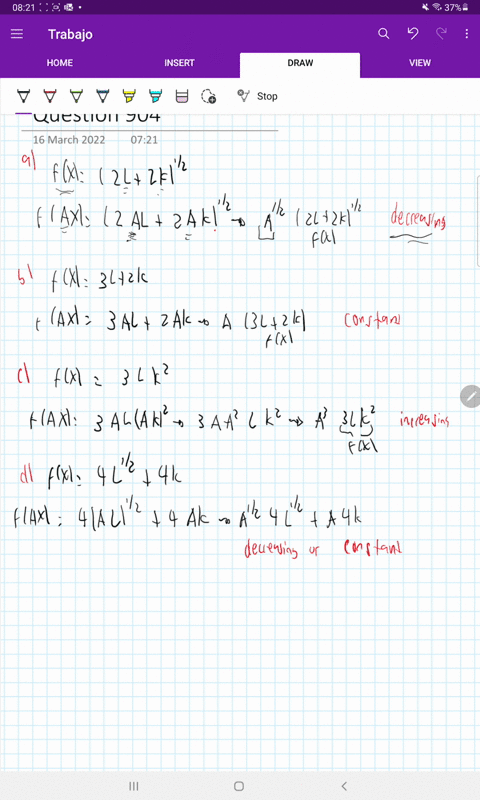 08:21 37%
Trabajo
HOME INSERT DRAW VIEW
Stop
Question 904
16 March 2022 07:21
a)
f(X): (2L+2k)^1/2
f(AX): (2AL + 2Ak)^1/2 → A^1/2 (2L+2k)^1/2 decreasing
f(x)
b) f(X): 3L+2k
f(AX) = 3AL+2Ak → A (3L+2k) constant
f(X)
c) f(X) = 3Lk²
f(AX): 3AL(Ak)² → 3AA²Lk² → A³ 3Lk² increasing
f(X)
d) f(X): 4L^1/2 + 4k
f(AX) = 4(AL)^1/2 + 4Ak → A^1/2 4L^1/2 + A4k
decreasing or constant